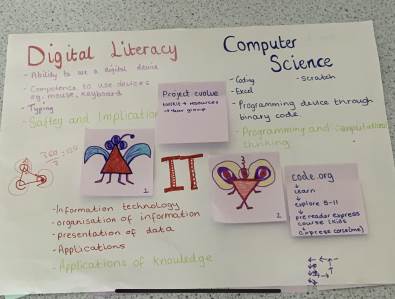 Digital Literacy
- Ability to use a digital device
- Competence to use devices
eg. mouse, keyboard
- Typing
- Saftey and Implication
Project evolve
toolkit + resources
Computer
Science
- Coding
- Scratch
- Excel
- Programming device through
binary code
- Programming and computational
thinking
IT
1
2
- Information technology
- organisation of information
- presentation of data
- Applications
- Applications of knowledge
code.org
learn
explore 5-11
pre reader express
course
express course